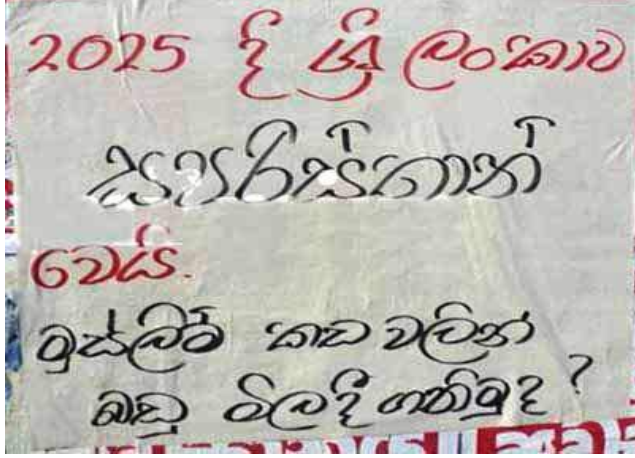 2025 දී ශ්‍රී ලංකාව
ෂරීස්ථාන්
වෙයි.
මුස්ලිම් කඩ වලින්
බඩු මිලදී ගනිමුද?